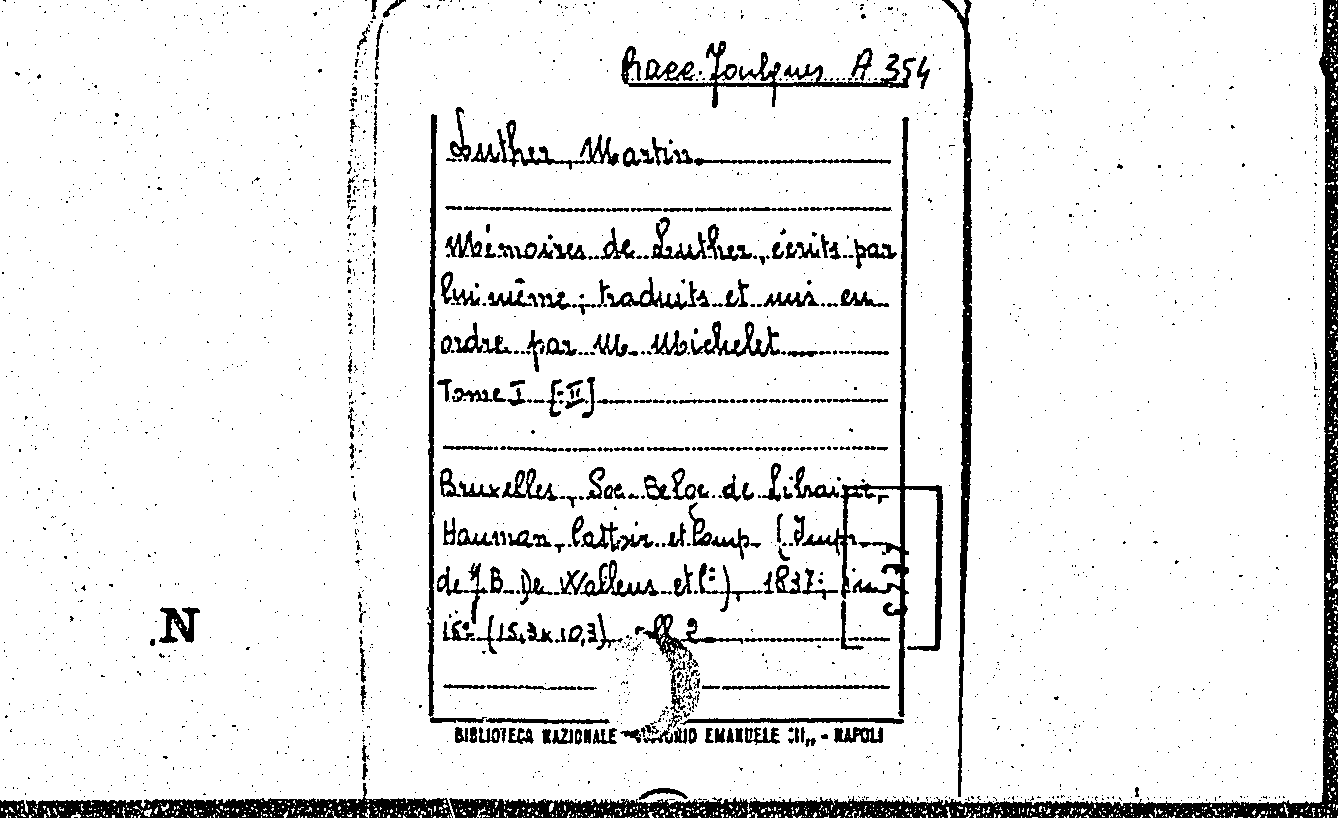 Race. Foulques A 354
Luther, Martin.
Mémoires de Luther, écrits par
lui même; traduits et mis en
ordre par M. Michelet
Tome I [-II]
Bruxelles, Soc. Belge de Librairie,
Hauman, Cattoir et Comp. (Impr.
de J. B. De Wallens et C.ie), 1837; in
16º (15,3x10,3) voll 2.
N
BIBLIOTECA NAZIONALE VITTORIO EMANUELE III,, - NAPOLI